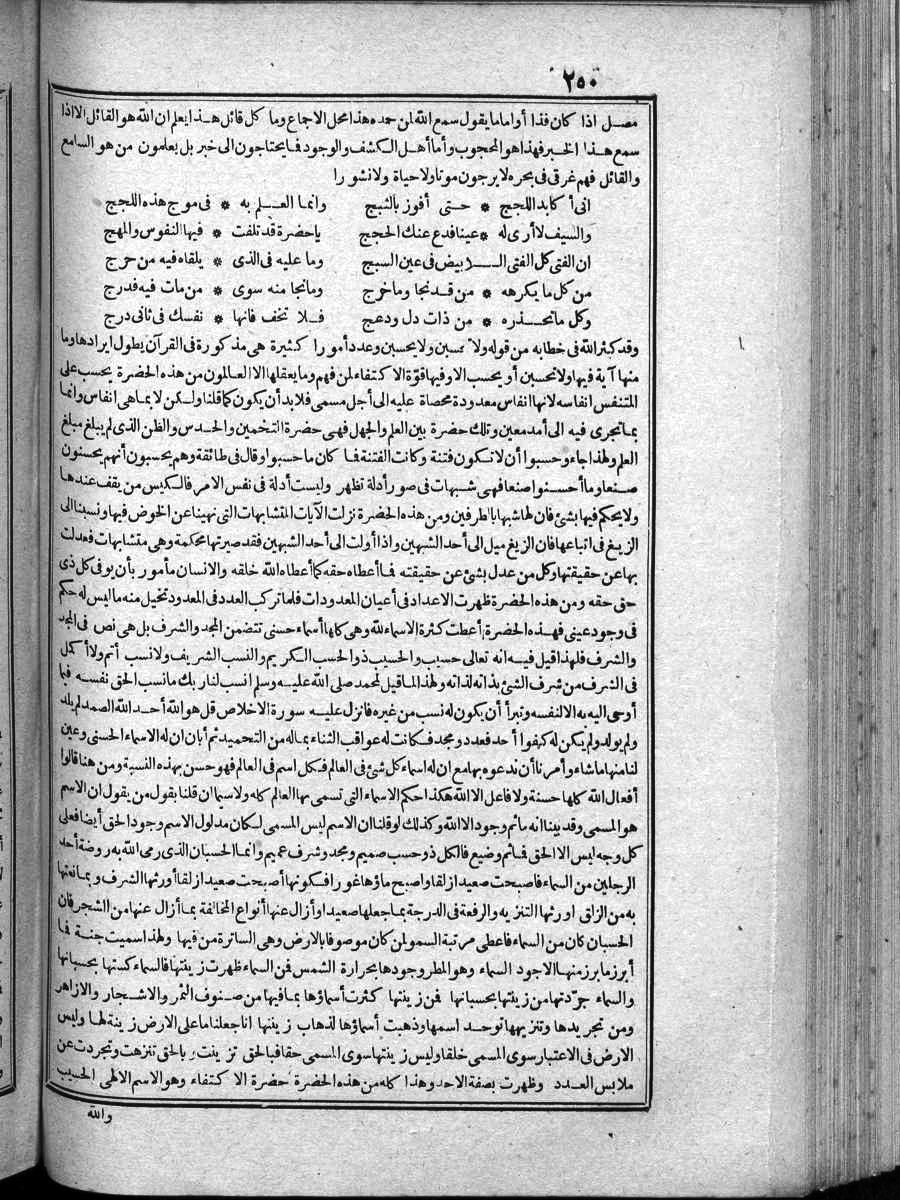 ٢٥٠
مصل اذا كان فذا أو اماما يقول سمع الله لمن حمده هذا محل الاجماع وما كل قائل هذا يعلم ان الله هو القائل الا اذا
سمع هذا الخبر فهذا هو المحجوب وأما أهل الكشف والوجود فما يحتاجون الى خبر بل يعلمون من هو السامع
والقائل فهم غرقى فى بحره لا يرجون موتا ولا حياة ولا نشورا
انى أكابد اللجج * حتى أفوز بالثبج وانما العلم به * فى موج هذه اللجج
والسيف لا أرى له * عينا فدع عنك الحجج يا حضرة قد تلفت * فيها النفوس والمهج
ان الفتى كل الفتى الـ ـبيض فى عين السبج وما عليه فى الذى * يلقاه فيه من حرج
من كل ما يكرهه * من قد نجا وما خرج وما نجا منه سوى * من مات فيه فدرج
وكل ما تحذره * من ذات دل ودعج فلا تخف فانها * نفسك فى ثانى درج
وقد كثر الله فى خطابه من قوله ولا تحسبن ولا يحسبن وعدد أمورا كثيرة هى مذكورة فى القرآن يطول ايرادها وما
منها آية فيها ولا تحسبن أو يحسب الا وفيها قوة الاكتفاء لمن فهم وما يعقلها الا العالمون من هذه الحضرة يحسب على
المتنفس انفاسه لانها انفاس معدودة محصاة عليه الى أجل مسمى فلا بد أن يكون كما قلنا ولكن لا بما هى انفاس وانما
بما تجرى فيه الى أمد معين وتلك حضرة بين العلم والجهل فهى حضرة التخمين والحدس والظن الذى لم يبلغ مبلغ
العلم ولهذا جاء وحسبوا أن لا تكون فتنة وكانت الفتنة فما كان ما حسبوا وقال فى طائفة وهم يحسبون أنهم يحسنون
صنعا وما أحسنوا صنعا فهى شبهات فى صور أدلة تظهر وليست أدلة فى نفس الامر فالكيس من يقف عندها
ولا يحكم فيها بشئ فان لها شبها بالطرفين ومن هذه الحضرة نزلت الآيات المتشابهات التى نهينا عن الخوض فيها ونسبنا الى
الزيغ فى اتباعها فان الزيغ ميل الى أحد الشبهين واذا أولت الى أحد الشبهين فقد صيرتها محكمة وهى متشابهات فعدلت
بها عن حقيقتها وكل من عدل بشئ عن حقيقته فما أعطاه حقه كما أعطاه الله خلقه والانسان مأمور بأن يوفى كل ذى
حق حقه ومن هذه الحضرة ظهرت الاعداد فى أعيان المعدودات فلما تركب العدد فى المعدود تخيل منه ما ليس له حكم
فى وجود عينى فهذه الحضرة أعطت كثرة الاسماء لله وهى كلها أسماء حسنى تتضمن المجد والشرف بل هى نص فى المجد
والشرف فلهذا قيل فيه انه تعالى حسيب والحسيب ذو الحسب الكريم والنسب الشريف ولا نسب أتم ولا أكمل
فى الشرف من شرف الشئ بذاته لذاته ولهذا لما قيل لمحمد صلى الله عليه وسلم انسب لنا ربك ما نسب الحق نفسه فيما
أوحى اليه به الا لنفسه وتبرأ أن يكون له نسب من غيره فانزل عليه سورة الاخلاص قل هو الله أحد الله الصمد لم يلد
ولم يولد ولم يكن له كفوا أحد فعدد ومجد فكانت له عواقب الثناء بما له من التحميد ثم أبان ان له الاسماء الحسنى وعين
لنا منها ما شاء وأمرنا أن ندعوه بها مع ان له اسماء كل شئ فى العالم فكل اسم فى العالم فهو حسن بهذه النسبة ومن هنا قالوا
أفعال الله كلها حسنة ولا فاعل الا الله هكذا حكم الاسماء التى تسمى بها العالم كله ولا سيما ان قلنا بقول من يقول ان الاسم
هو المسمى وقد بينا انه ما ثم وجود الا الله وكذلك لو قلنا ان الاسم ليس المسمى لكان مدلول الاسم وجود الحق أيضا فعلى
كل وجه ليس الا الحق فما ثم وضيع فالكل ذو حسب صميم ومجد وشرف عميم وانما الحسبان الذى رمى الله به روضة أحد
الرجلين من السماء فاصبحت صعيدا زلقا واصبح ماؤها غورا فكونها أصبحت صعيدا زلقا أورثها الشرف وبما نعتها
به من الزلق اورثها التنزيه والرفعة فى الدرجة بما جعلها صعيدا وأزال عنها أنواع المخالفة بما أزال عنها من الشجر فان
الحسبان كان من السماء فاعطى مرتبة السمو لمن كان موصوفا بالارض وهى الساترة من فيها ولهذا سميت جنة فما
أبرز ما برز منها الا جود السماء وهو المطر وجودها بحرارة الشمس فمن السماء ظهرت زينتها فالسماء كستها بحسبانها
والسماء جردتها من زينتها بحسبانها فمن زينتها كثرت أسماؤها بما فيها من صنوف الثمر والاشجار والازاهر
ومن تجريدها وتنزيهها توحد اسمها وذهبت أسماؤها لذهاب زينتها انا جعلنا ما على الارض زينة لها وليس
الارض فى الاعتبار سوى المسمى خلقا وليس زينتها سوى المسمى حقا فبالحق تزينت وبالحق تنزهت وتجردت عن
ملابس العدد وظهرت بصفة الاحد وهذا كله من هذه الحضرة حضرة الاكتفاء وهو الاسم الالهى الحسيب
والله